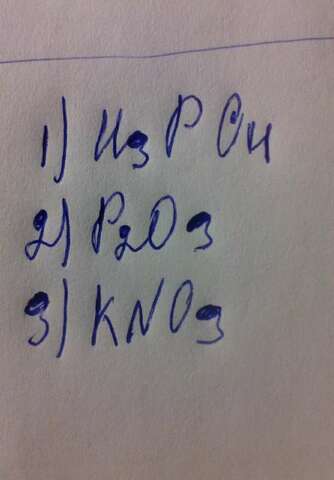 1) H3PO4
2) P2O3
3) KNO3